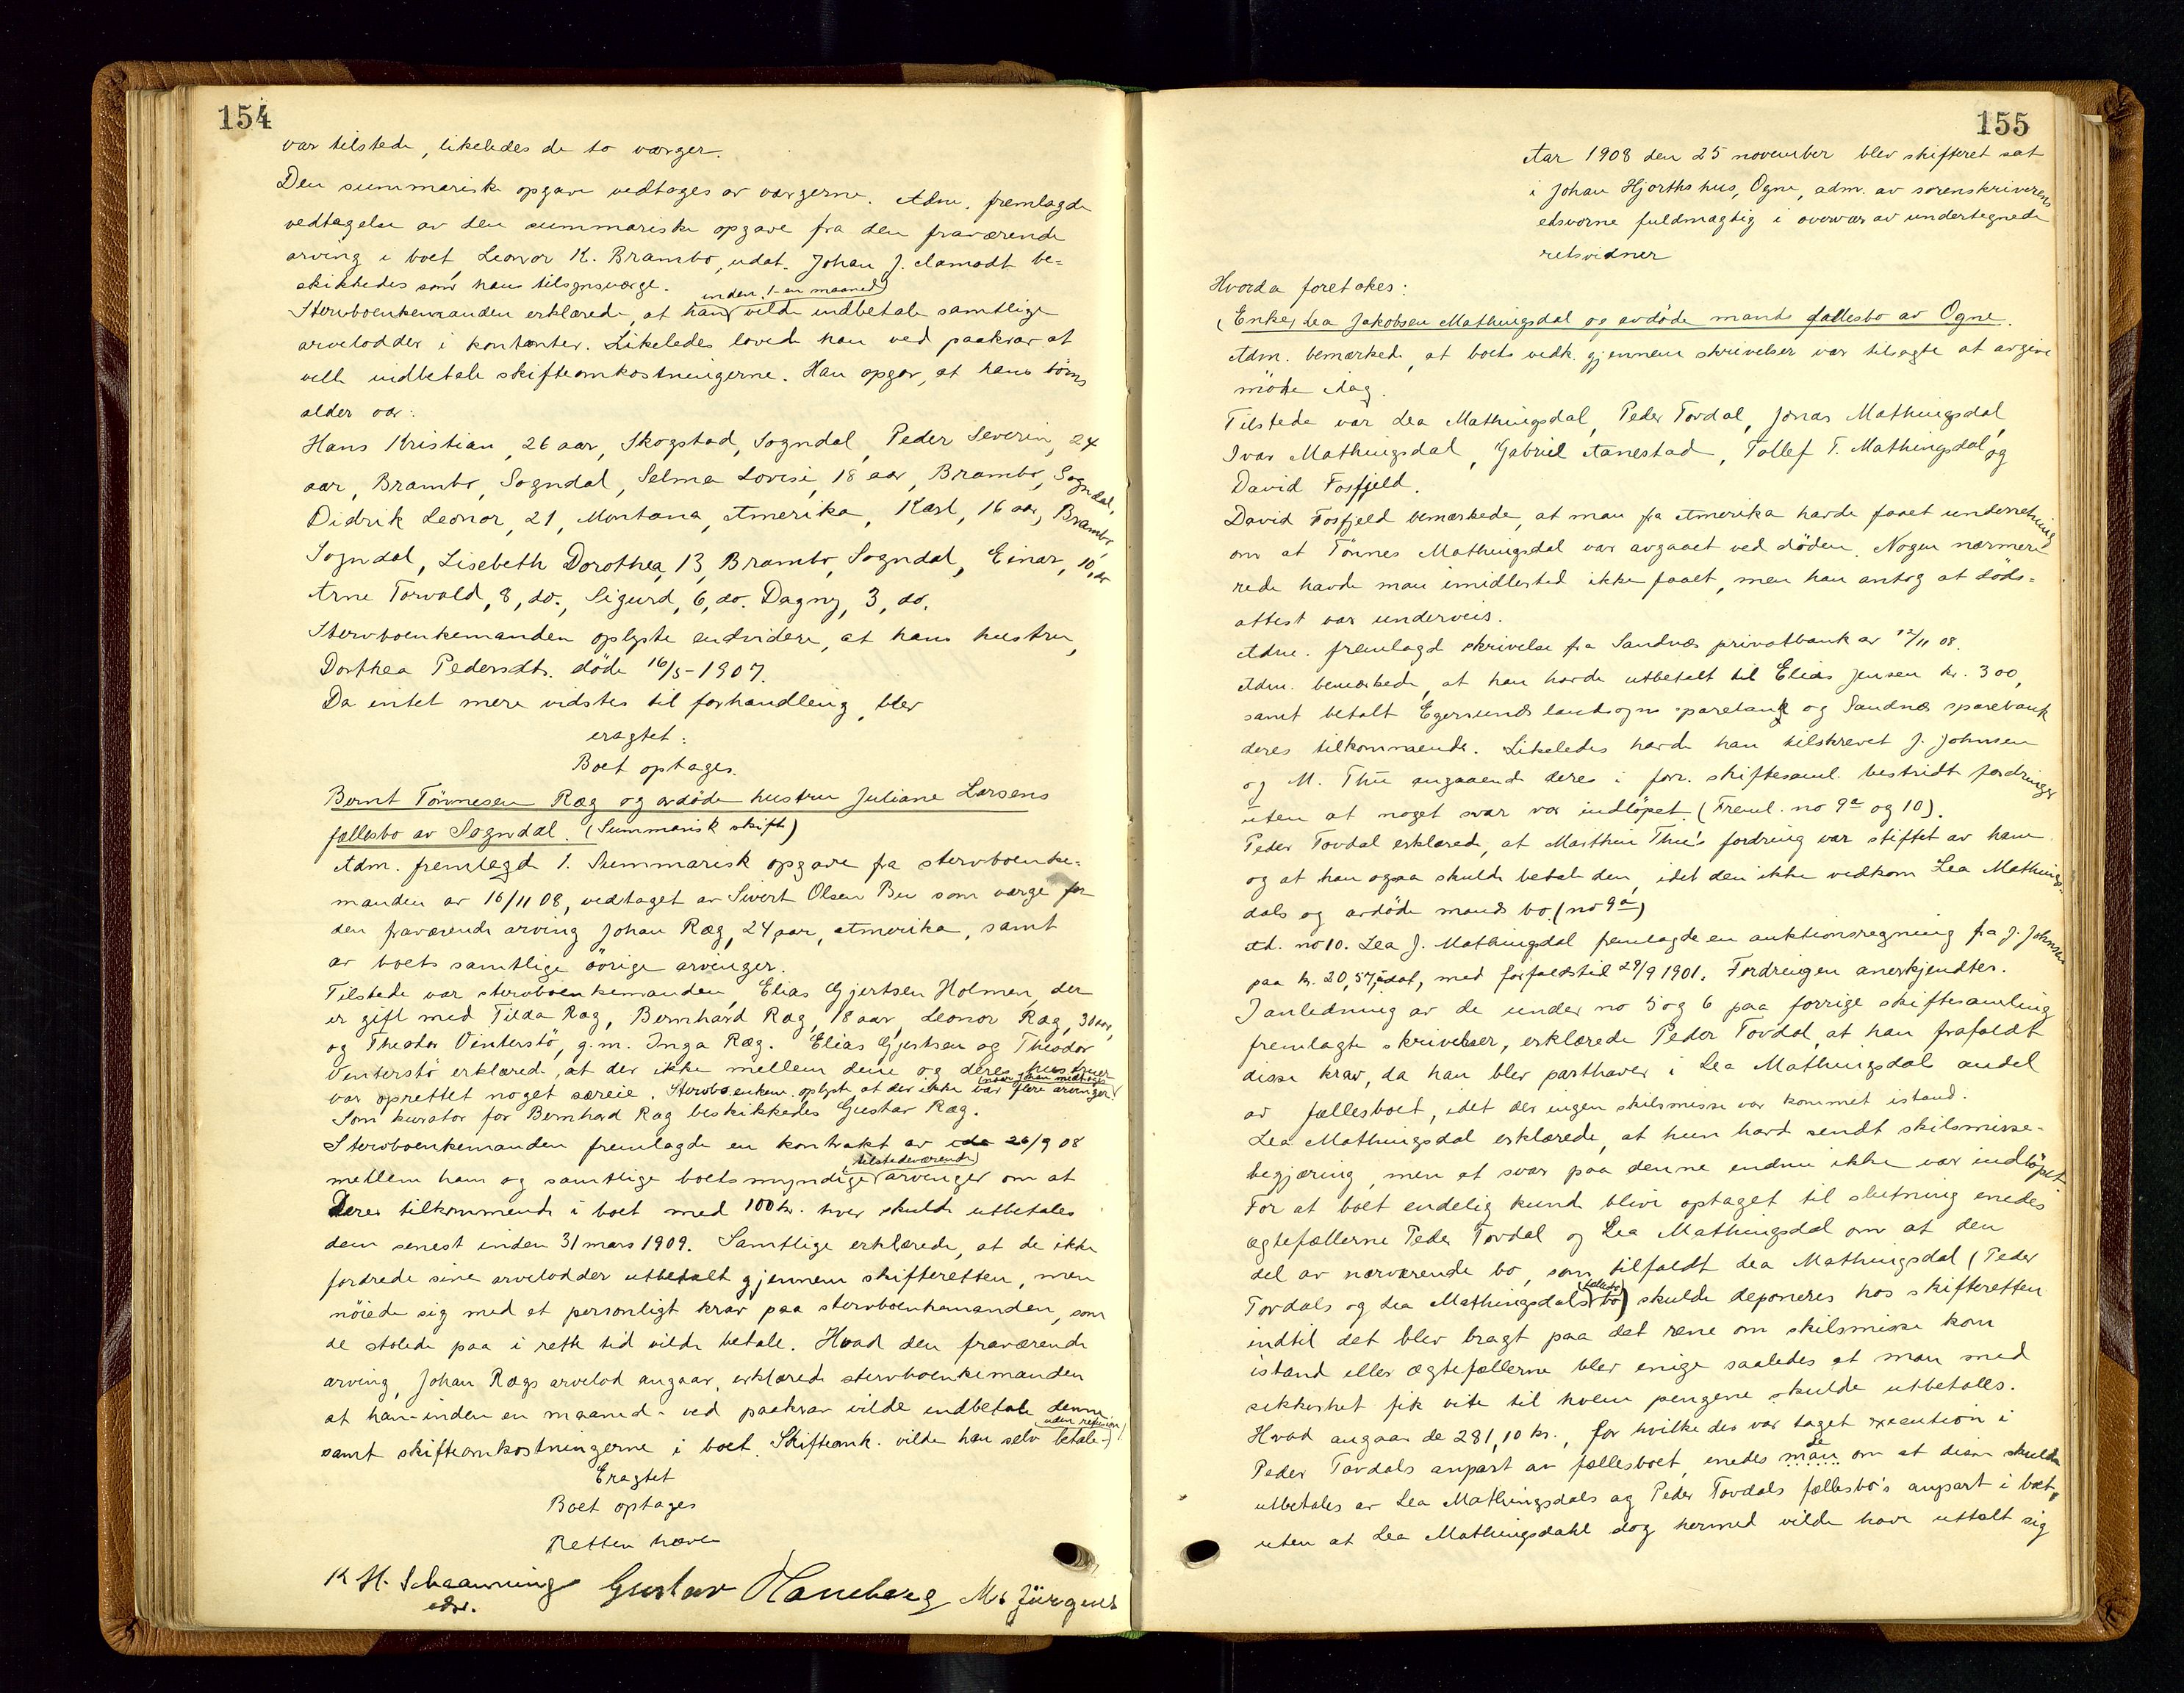 154
var tilstede, likeledes de to værger.
Den summariske opgave vedtages av værgerne. Adm. fremlagde
vedtagelse av den summariske opgave fra den fraværende
arving i boet, Leonor K. Brambo, udat. Johan J. Aamodt be-
skikkedes som hans tilsynsværge.
inden 1-en maaned
Stervboenkemanden erklærede, at han vilde indbetale samtlige
arvelodder i kontanter. Likeledes lovede han ved paakrav at
ville indbetale skifteomkostningerne. Han opgav, at hans börns
alder var:
Hans Kristian, 26 aar, Skogstad, Sogndal, Peder Severin, 24
aar, Brambo, Sogndal, Selma Lovise, 18 aar, Brambo, Sogndal,
Didrik Leonor, 21, Montana, Amerika, Karl, 16 aar, Brambo,
Sogndal, Lisebeth Dorothea, 13, Brambo, Sogndal, Einar, 10, do
Arne Torvald, 8, do., Sigurd, 6, do. Dagny, 3, do.
Stervboenkemanden oplyste endvidere, at hans hustru,
Dorthea Pedersdtr. döde 16/5-1907.
Da intet mere vidstes til forhandling, blev
eragtet:
Boet optages.
Bernt Tönnesen Ræg og avdöde hustru Juliane Larsens
fællesbo av Sogndal. (Summarisk skifte)
Adm. fremlagd 1. Summarisk opgave fra stervboenke-
manden av 16/11 08, vedtaget av Sivert Olsen Bu som værge for
den fraværende arving Johan Ræg, 24 aar, Amerika, samt
av boets samtlige övrige arvinger.
Tilstede var stervboenkemanden, Elias Gjertsen Holmen, der
er gift med Tilda Ræg, Bernhard Ræg, 18 aar, Leonor Ræg, 30 aar,
og Theodor Vinterstö, g.m. Inga Ræg. Elias Gjertsen og Theodor
Vinterstö erklærede, at der ikke mellem dem og deres hustruer
var oprettet noget særeie. Stervboenkem. oplyste at der ikke var flere arvinger
Som kurator for Bernhard Ræg beskikkedes Gustav Ræg.
Stervboenkemanden fremlagde en kontrakt av 26/9 08
tilstedeværende
mellem ham og samtlige boets myndige arvinger om at
Deres tilkommende i boet med 100 kr. hver skulde utbetales
dem senest inden 31 mars 1909. Samtlige erklærede, at de ikke
fordrede sine arvelodder utbetalt gjennem skifteretten, men
nöiede sig med et personligt krav paa stervboenkemanden, som
de stolede paa i rette tid vilde betale. Hvad den fraværende
arving, Johan Rægs arvelod angaar, erklærede stervboenkemanden
at han inden en maaned - ved paakrav vilde indbetale denne
uden refusion
samt skifteomkostningerne i boet. Skifteomk. vilde han selv betale
Eragtet
Boet optages
Retten hævet
K H. Schaanning Gustav Haneberg M. Jürgens
edsv.
155
Aar 1908 den 25 november blev skifteret sat
i Johan Hjorths hus, Ogne, adm. av sorenskriverens
edsvorne fuldmægtig i overvær av undertegnede
retsvidner
Hvorda foretokes:
(Enke) Lea Jakobsen Mathingsdal og avdöde mands fællesbo av Ogne.
Adm. bemærkede, at boets vedk. gjennem skrivelser var tilsagte at avgive
möte idag.
Tilstede var Lea Mathingsdal, Peder Tovdal, Jonas Mathingsdal,
Ivar Mathingsdal, Gabriel Aanestad, Tollef T. Mathingsdal og
David Fosfjeld.
David Fosfjeld bemærkede, at man fra Amerika havde faaet underretning
om at Tönnes Mathingsdal var avgaaet ved döden. Nogen nærmere
rede havde man imidlertid ikke faaet, men han antog at döds-
attest var underveis.
Adm. fremlagd skrivelse fra Sandnæs privatbank av 12/11 08.
Adm. bemærkede, at han havde utbetalt til Elias Jensen kr. 300,
samt betalt Egersunds landsogns sparebank og Sandnæs sparebank
deres tilkommende. Likeledes havde han tilskrevet J. Johnsen
og M. Thu angaaende deres i forr. skiftesaml. bestridt fordringer
uten at noget svar var indlöpet. (Freml. no 9a og 10).
Peder Tovdal erklærede, at Marthin Thu's fordring var stiftet av ham
og at han ogsaa skulde betale den, idet den ikke vedkom Lea Mathings-
dals og avdöde mands bo. (no 9a)
Ad. no 10. Lea J. Mathingsdal fremlagde en auktionsregning fra J. Johnsen
paa kr. 20,57, udat, med forfaldstid 29/9 1901. Fordringen anerkjendtes.
I anledning av de under no 5 og 6 paa forrige skiftesamling
fremlagte skrivelser, erklærede Peder Tovdal, at han frafaldt
disse krav, da han blev parthaver i Lea Mathingsdals andel
av fællesboet, idet der ingen skilsmisse var kommet istand.
Lea Mathingsdal erklærede, at hun havd sendt skilsmisse-
begjæring, men at svar paa denne endnu ikke var indlöpet
For at boet endelig kunde blive optaget til slutning enedes
ægtefællerne Peder Tovdal og Lea Mathingsdal om at den
del av nærværende bo, som tilfaldt Lea Mathingsdal (Peder
fælles
Tovdals og Lea Mathingsdals bo) skulde deponeres hos skifteretten
indtil det blev bragt paa det rene om skilsmisse kom
istand eller ægtefællerne blev enige saaledes at man med
sikkerhet fik vite til hvem pengene skulde utbetales.
Hvad angaar de 281,10 kr., for hvilke der var taget execution i
de
Peder Tovdals anpart av fællesboet, enedes man om at disse skulde
utbetales av Lea Mathingsdals og Peder Tovdals fællesbo's anpart i boet,
uten at Lea Mathingsdahl dog hermed vilde have uttalt sig